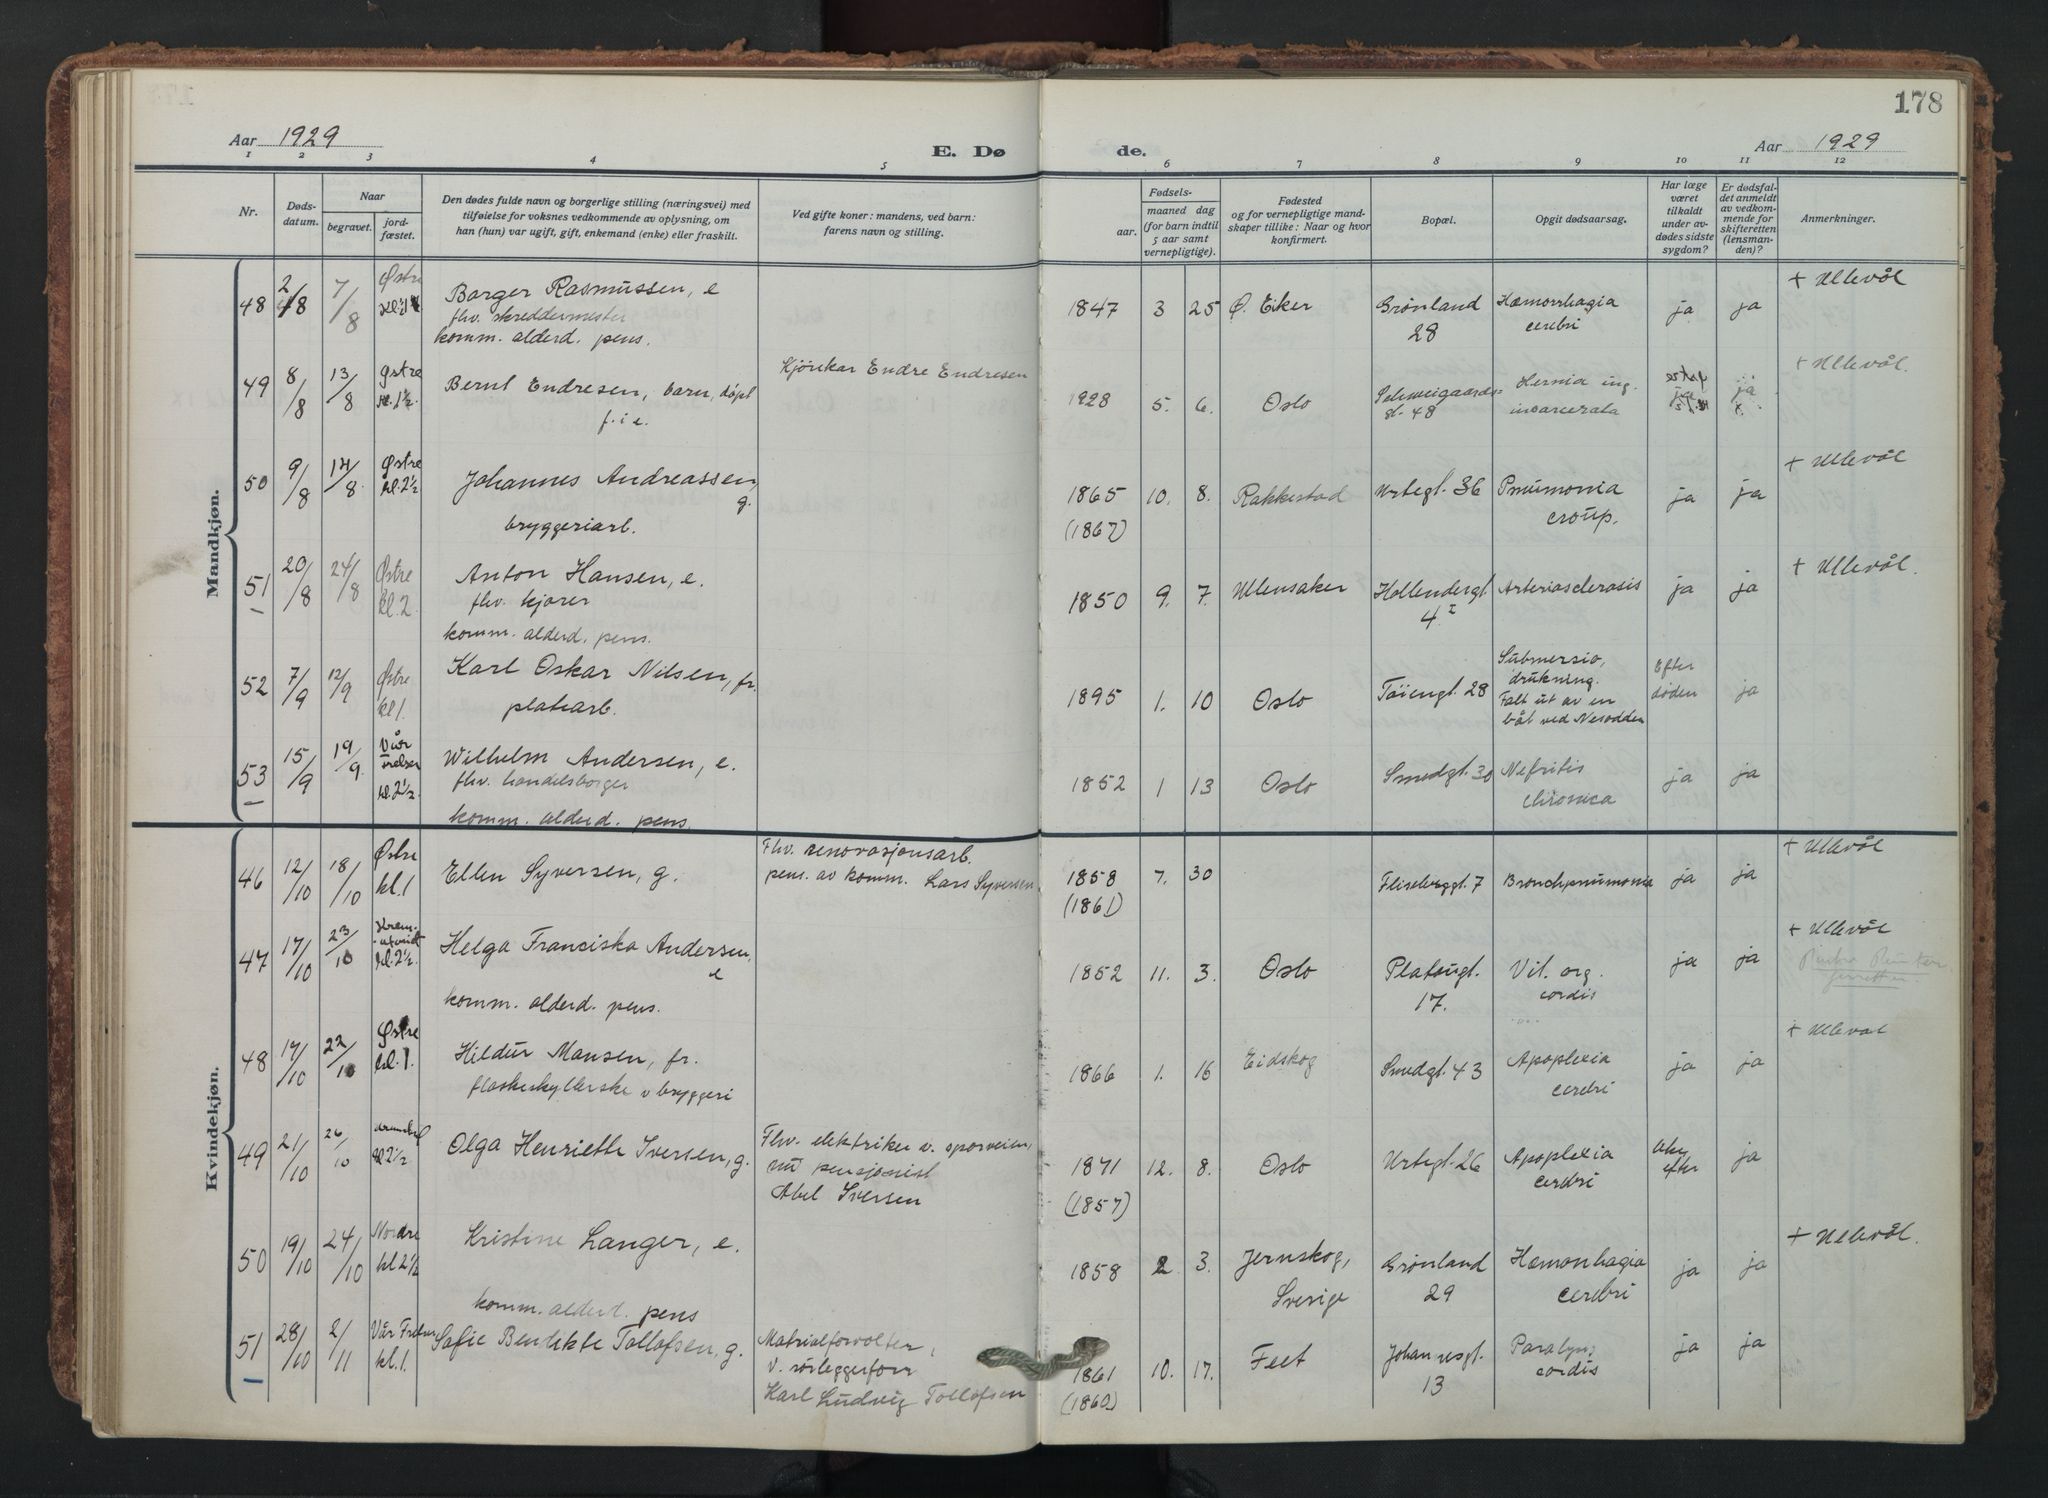 178
Aar 1929
E. Dø de.
Aar 1929
1 2 3 4 5 6 7 8 9 10 11 12
Nr.
Døds-
datum.
Naar
begravet.
jord-
fæstet.
Den dødes fulde navn og borgerlige stilling (næringsvei) med
tilføielse for voksnes vedkommende av oplysning, om
han (hun) var ugift, gift, enkemand (enke) eller fraskilt.
Ved gifte koner: mandens, ved barn:
farens navn og stilling.
Fødsels-
aar.
maaned dag
(for barn indtil
5 aar samt
vernepligtige).
Fødested
og for vernepligtige mand-
skaper tillike: Naar og hvor
konfirmert.
Bopæl.
Opgit dødsaarsag.
Har læge
været
tilkaldt
under av-
dødes sidste
sygdom?
Er dødsfal-
det anmeldt
av vedkom-
mende for
skifteretten
(lensman-
den)?
Anmerkninger.
Mandkjøn.
48 2/8 7/8 Østre
Borger Rasmussen, e
fhv. skreddermester
komm. alderd. pens.
1847 3 25 Ø. Eiker Grønland
28
Hæmorrhagia
cerebri
ja ja + Ullevål
49 8/8 13/8 Østre
kl. 1½.
Bernt Endresen, barn, døpt
f. i e.
Kjørekar Endre Endresen
1928 5. 6. Oslo Schweigaards=
gt. 48
Hernia ing.
incarcerata
ja ja + Ullevål.
50 9/8 14/8. Østre
kl. 2½
Johannes Andreassen
g.
bryggeriarb.
1865
(1867)
10. 8. Rakkestad Urtegt. 36 Pneumonia
croup.
ja ja + Ullevål
51 20/8 24/8 Østre
kl. 2.
Anton Hansen, e.
fhv. kjører
komm. alderd. pens.
1850 9. 7. Ullensaker Hollendergt.
4 I
Arteriosclerosis
ja ja + Ullevål.
52 7/9 12/9 Østre
kl 1.
Karl Oskar Nilsen, fr.
platearb.
1895 1. 10 Oslo Tøiengt. 28
Submersio,
drukning.
Falt ut av en
båt ved Nesodden
Efter
døden
ja
53 15/9 19/9. Vår
Frelser
kl. 2½.
Wilhelm Andersen, e.
fhv. handelsborger
komm. alderd. pens.
1852 1 13 Oslo Smedgt. 30 Nefritis
chronica
ja ja
Kvindekjøn.
46 12/10 18/10 Østre
kl. 1
Ellen Syversen, g.
Fhv. renovasjonsarb.
pens. av komm. Lars Syversen
1858
(1861)
7. 30 Flisberggt. 7 Bronchpneumonia ja ja + Ullevål
47 17/10 23/10 Krem-
atoriet
kl. 2½.
Helga Franciska Andersen,
e
komm. alderd. pens.
1852 11. 3. Oslo Platougt.
17.
Vit. org.
cordis
ja ja + Ullevål
48 17/10 22/10 Østre
kl. 1.
Hildur Mansen, fr.
flaskeskyllerske v bryggeri
1866 1. 16 Eidskog Smedgt. 43 Apoplexia
cerebri
ja ja + Ullevål
49 21/10 26/10
kl 2½
Olga Henriette Iversen, g.
Fhv. elektriker v. sporveien,
nu pensjonist
Abel Iversen
1871
(1857)
12. 8. Oslo Urtegt. 26 Apoplexia
cerebri
efter
ja
50 19/10 24/10 Nordre
kl 2½
Kristine Langer, e.
komm. alderd. pens
1858 2 3. Jernskog,
Sverige
Grønland
29
Hæmorrhagia
cerebri
ja ja + Ullevål.
51 28/10 2/11 Vår Frelser
kl. 1.
Sofie Bendikte Tollofsen, g.
Matrialforvalter,
v. rørleggerforr
Karl Ludvig Tollofsen
1861
(1860)
10. 17. Feet Johannesgt.
13
Paralysis
cordis
ja ja